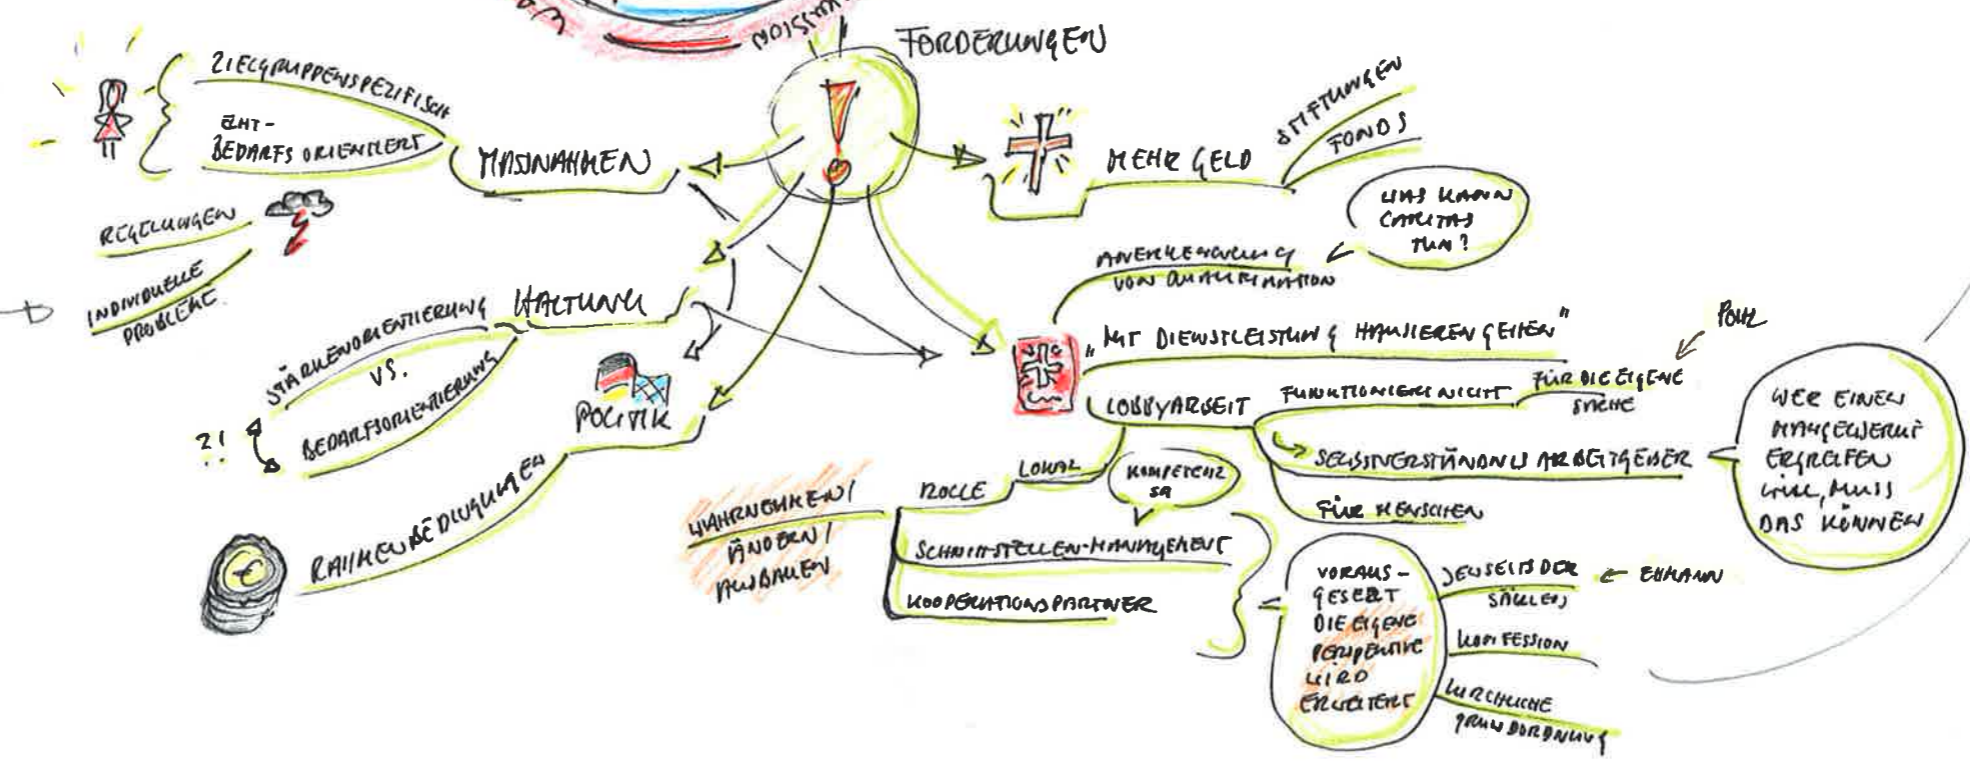 FORDERUNGEN
ZIELGRUPPENSPEZIFISCH
ECHT-
BEDARFSORIENTIERT
MASSNAHMEN
REGELUNGEN
INDIVIDUELLE
PROBLEME
HALTUNG
STÄRKENORIENTIERUNG
VS.
BEDARFSORIENTIERUNG
?!
POLITIK
RAHMENBEDINGUNGEN
€
MEHR GELD
STIFTUNGEN
FONDS
WAS KANN
CARITAS
TUN?
ANERKENNUNG
VON QUALIFIKATION
"MIT DIENSTLEISTUNG HAUSIEREN GEHEN"
POHL
LOBBYARBEIT
FUNKTIONIERT NICHT
FÜR DIE EIGENE
SACHE
SELBSTVERSTÄNDNIS ARBEITGEBER
WER EINEN
MANGELBERUF
ERGREIFEN
WILL, MUSS
DAS KÖNNEN
FÜR MENSCHEN
LOKAL
ROLLE
KOMPETENZ
SA
WAHRNEHMEN/
ÄNDERN/
AUSBAUEN
SCHNITTSTELLEN-MANAGEMENT
KOOPERATIONSPARTNER
VORAUS-
GESETZT
DIE EIGENE
PERSPEKTIVE
WIRD
ERWEITERT
JENSEITS DER
SÄULEN
EHMANN
KONFESSION
KIRCHLICHE
GRUNDORDNUNG